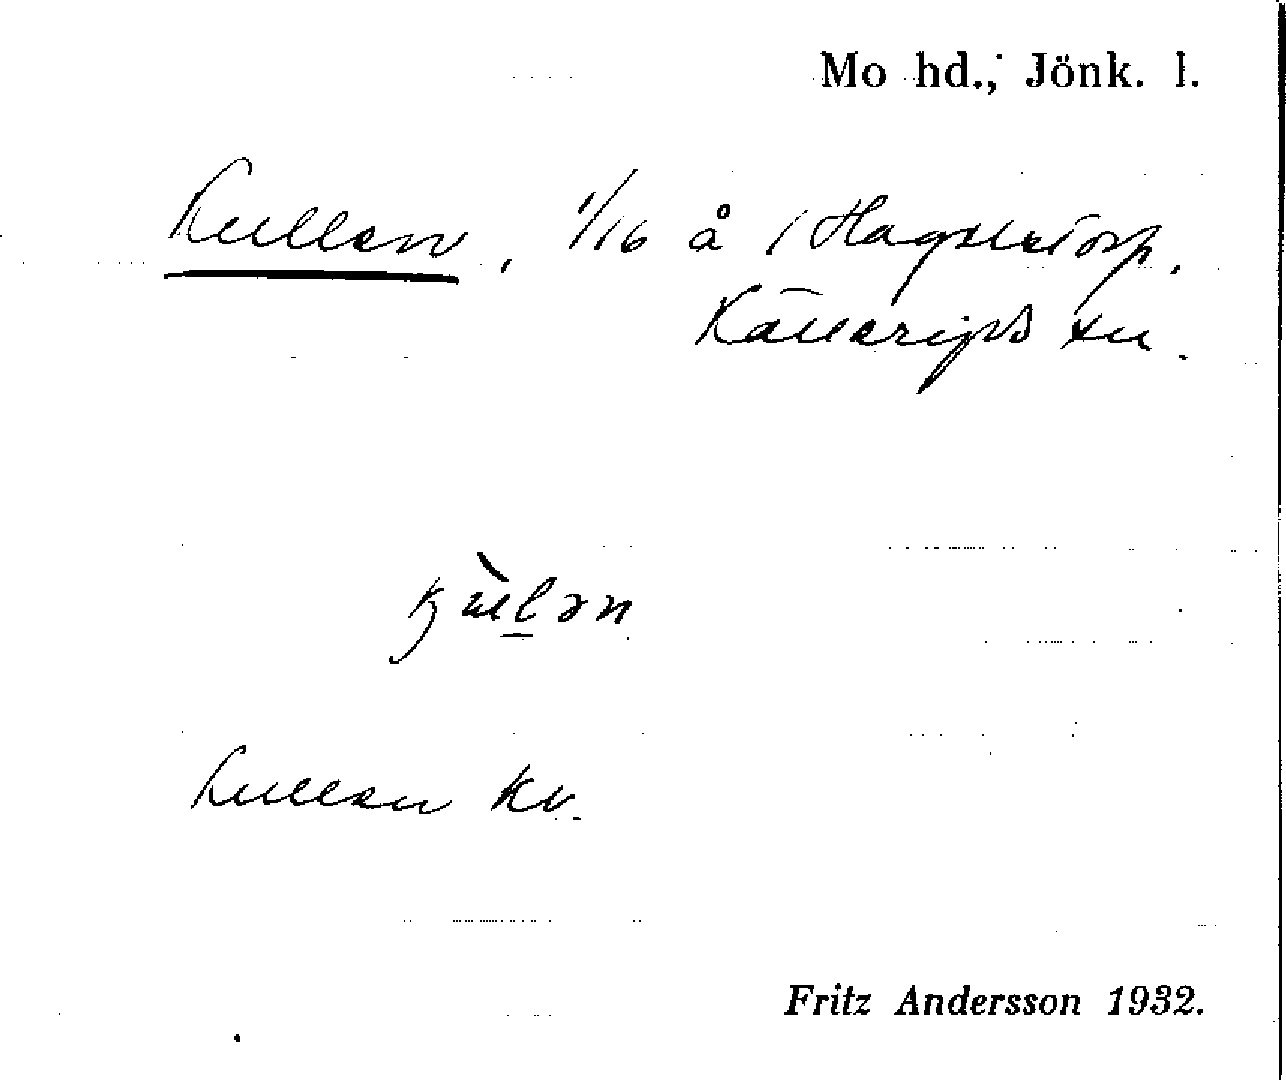 Mo hd., Jönk. l.
Kullen, 1/16 å 1 Hagstatorp,
Källeryds sn.
Kullen kv.
Fritz Andersson 1932.